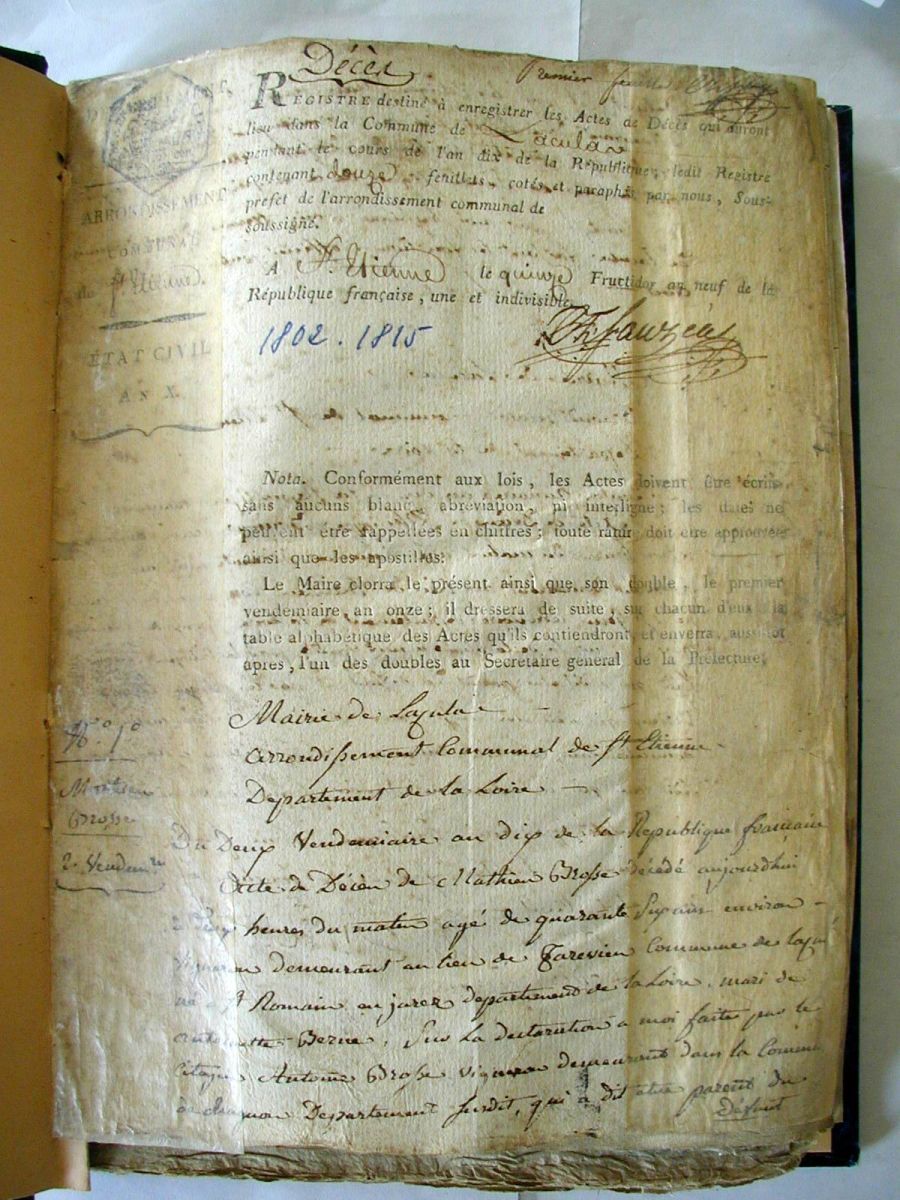 Décès
Premier
REGISTRE destiné à enregistrer les Actes de Décès qui auront
lieu dans la Commune de
pendant le cours de l'an dix de la République; ledit Registre
contenant douze feuillets, cotés et paraphés par nous, Sous-
préfet de l'arrondissement communal de
soussigné.
A St. Etienne le quinze Fructidor an neuf de la
République française, une et indivisible.
ARRONDISSEMENT
COMMUNAL
de St Etienne
ÉTAT CIVIL
AN X.
1802. 1815
Nota. Conformément aux lois, les Actes doivent être écrits
sans aucuns blanc, abréviation, ni interligne; les dates ne
peuvent être rappellées en chiffres; toute rature doit être approuvée
ainsi que les apostilles.
Le Maire clorra le présent ainsi que son double, le premier
vendémiaire an onze; il dressera de suite, sur chacun d'eux la
table alphabétique des Actes qu'ils contiendront, et enverra, aussitôt
après, l'un des doubles au Secrétaire général de la Préfecture.
Mairie de
arrondissement Communal de St Etienne
Departement de la Loire
N.° 1.°
Mathieu
Brosse
2. Vendem.re
Du Deux Vendemiaire an dix de la Republique francaise
Acte de Décès de Mathieu Brosse décédé aujourdhui
heures du matin agé de quarante Six ans environ
Vigneron demeurant au lieu de Commune de
né a St Romain en jarez departement de la Loire, mari de
Sur la declaration a moi faite par le
citoyen Antoine Brosse vigneron demeurant dans la Commune
de Departement Susdit, qui a dit etre parent du
Défunt